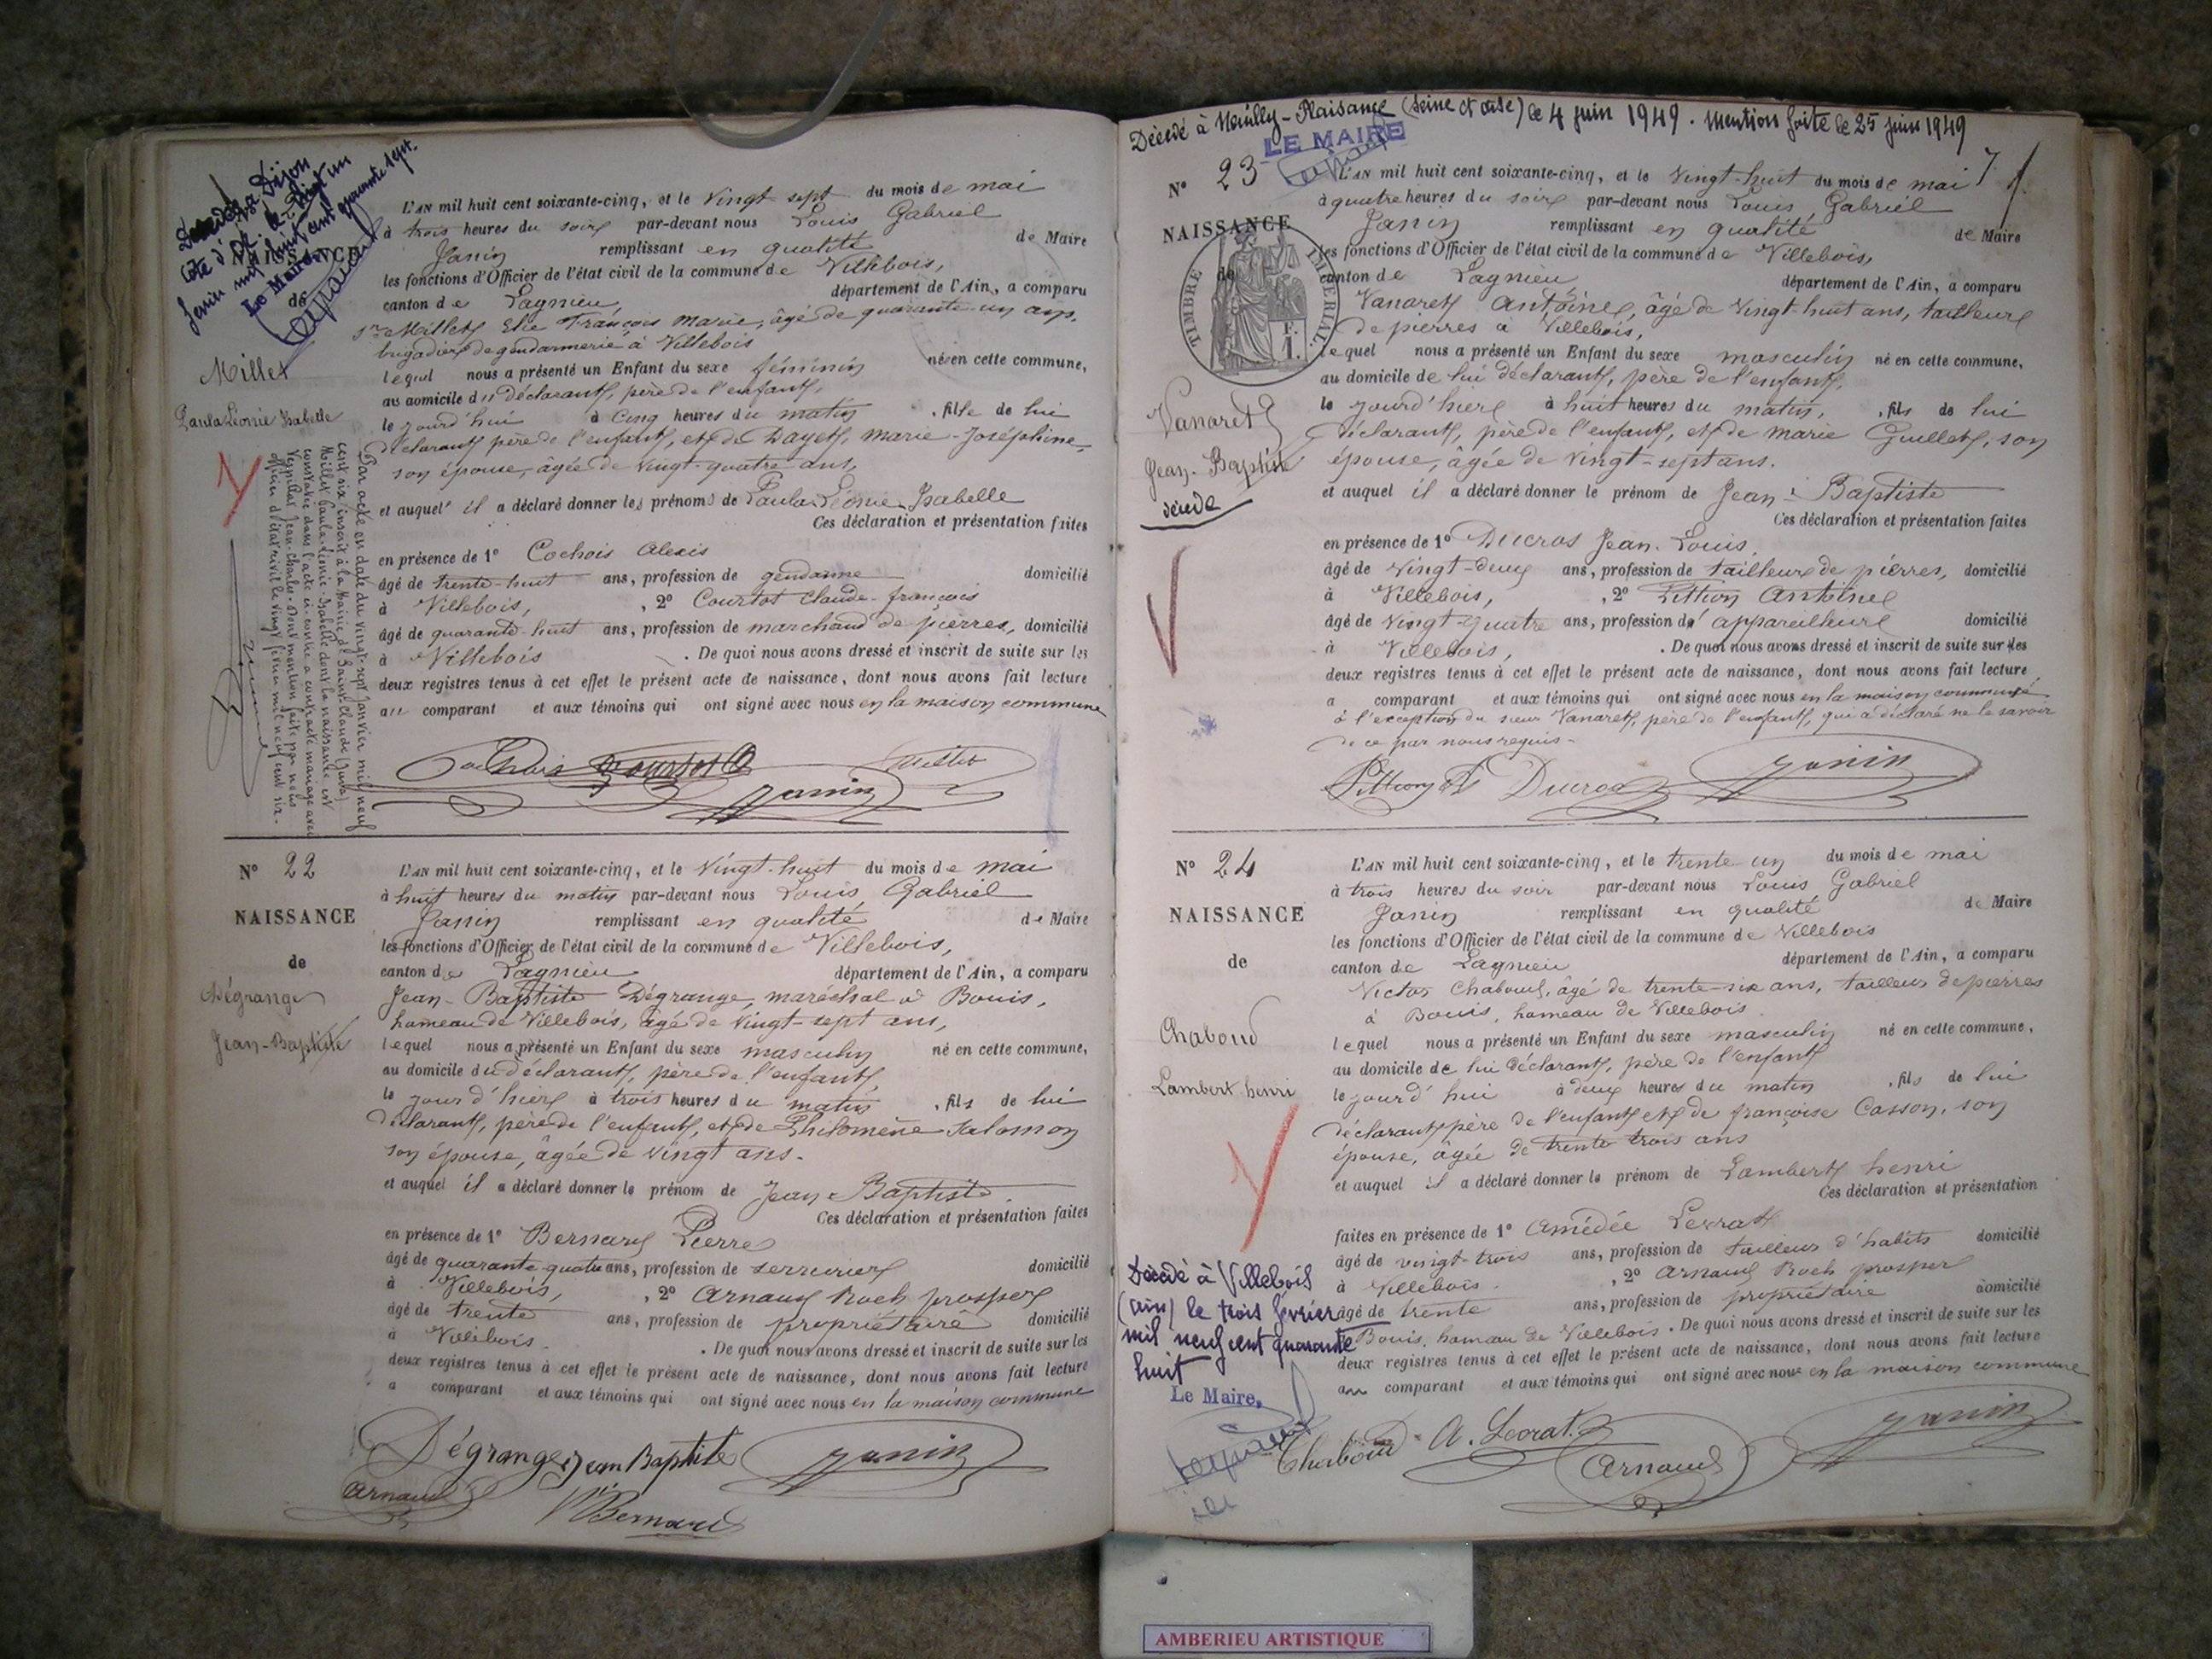 Décédée à Dijon
Côte d'Or le vingt un
janvier mil huit cent quarante sept.
Le Maire
NAISSANCE
de
Millet
Paula Léonie Isabelle
Par acte en date du vingt-sept janvier mil neuf
cent six inscrit à la Mairie de Saint-Claude (Jura)
Millet Paula-Léonie-Isabelle dont la naissance est
constatée dans l'acte ci-contre a contracté mariage avec
Jean-Charles. Dont mention faite par nous
officier d'état civil le vingt février mil neuf cent six.
L'AN mil huit cent soixante-cinq, et le vingt sept du mois de mai
à trois heures du soir par-devant nous Louis Gabriel
Janin remplissant en qualité de Maire
les fonctions d'Officier de l'état civil de la commune de Villebois,
canton de Lagnieu, département de l'Ain, a comparu
sr Millet Elie François Marie, âgé de quarante-un ans,
brigadier de gendarmerie à Villebois
lequel nous a présenté un Enfant du sexe féminin né en cette commune,
au domicile du déclarant, père de l'enfant,
le jourd'hui à cinq heures du matin, fille de lui
déclarant père de l'enfant, et de Dayet, Marie-Joséphine,
son épouse, âgée de vingt-quatre ans,
et auquel il a déclaré donner les prénoms de Paula Léonie Isabelle
Ces déclaration et présentation faites
en présence de 1° Cochois Alexis
âgé de trente-huit ans, profession de gendarme domicilié
à Villebois, , 2° Courtot Claude-françois
âgé de quarante-huit ans, profession de marchand de pierres, domicilié
à Villebois . De quoi nous avons dressé et inscrit de suite sur les
deux registres tenus à cet effet le présent acte de naissance, dont nous avons fait lecture
au comparant et aux témoins qui ont signé avec nous en la maison commune
Cochois Courtot Millet
Janin
N° 22
NAISSANCE
de
Dégrange
Jean-Baptiste
L'AN mil huit cent soixante-cinq, et le vingt-huit du mois de mai
à huit heures du matin par-devant nous Louis Gabriel
Janin remplissant en qualité de Maire
les fonctions d'Officier de l'état civil de la commune de Villebois,
canton de Lagnieu département de l'Ain, a comparu
Jean-Baptiste Dégrange, maréchal à Bouis,
hameau de Villebois, âgé de vingt-sept ans,
lequel nous a présenté un Enfant du sexe masculin né en cette commune,
au domicile du déclarant, père de l'enfant,
le jour d'hier à trois heures du matin , fils de lui
déclarant, père de l'enfant, et de Philomène Salomon
son épouse, âgée de vingt ans.
et auquel il a déclaré donner le prénom de Jean-Baptiste.
Ces déclaration et présentation faites
en présence de 1° Bernard Pierre
âgé de quarante quatre ans, profession de serrurier domicilié
à Villebois, , 2° Arnaud Roch prosper
âgé de trente ans, profession de propriétaire domicilié
à Villebois. . De quoi nous avons dressé et inscrit de suite sur les
deux registres tenus à cet effet le présent acte de naissance, dont nous avons fait lecture
a comparant et aux témoins qui ont signé avec nous en la maison commune
Dégrange Jean Baptiste Janin
Arnaud
Bernard
Décédé à Neuilly-Plaisance (Seine et Oise) le 4 juin 1949. Mention faite le 25 juin 1949
LE MAIRE
N° 23
NAISSANCE
de
TIMBRE IMPERIAL
1 F.
Vanaret
Jean-Baptiste
décédé
L'AN mil huit cent soixante-cinq, et le vingt-huit du mois de mai
à quatre heures du soir par-devant nous Louis Gabriel
Janin remplissant en qualité de Maire
les fonctions d'Officier de l'état civil de la commune de Villebois,
canton de Lagnieu département de l'Ain, a comparu
Vanaret Antoine, âgé de vingt-huit ans, tailleur
de pierres à Villebois,
lequel nous a présenté un Enfant du sexe masculin né en cette commune,
au domicile de lui déclarant, père de l'enfant,
le jourd'hier à huit heures du matin, , fils de lui
déclarant, père de l'enfant, et de Marie Guillet, son
épouse, âgée de vingt-sept ans.
et auquel il a déclaré donner le prénom de Jean-Baptiste
Ces déclaration et présentation faites
en présence de 1° Ducros Jean-Louis.
âgé de vingt-deux ans, profession de tailleur de pierres, domicilié
à Villebois, , 2° Pittion Antoine
âgé de vingt-quatre ans, profession d'appareilleur domicilié
à Villebois, . De quoi nous avons dressé et inscrit de suite sur les
deux registres tenus à cet effet le présent acte de naissance, dont nous avons fait lecture
a comparant et aux témoins qui ont signé avec nous en la maison commune
à l'exception du sieur Vanaret, père de l'enfant, qui a déclaré ne le savoir
de ce par nous requis.
Pittion A Ducros Janin
N° 24
NAISSANCE
de
Chaboud
Lambert henri
Décédé à Villebois
(Ain) le trois février
mil neuf cent quarante
huit
Le Maire,
L'AN mil huit cent soixante-cinq, et le trente un du mois de mai
à trois heures du soir par-devant nous Louis Gabriel
Janin remplissant en qualité de Maire
les fonctions d'Officier de l'état civil de la commune de Villebois
canton de Lagnieu département de l'Ain, a comparu
Victor Chaboud, âgé de trente-six ans, tailleur de pierres
à Bouis, hameau de Villebois.
lequel nous a présenté un Enfant du sexe masculin né en cette commune,
au domicile de lui déclarant, père de l'enfant
le jourd'hui à deux heures du matin , fils de lui
déclarant père de l'enfant et de françoise Casson, son
épouse, âgée de trente trois ans
et auquel il a déclaré donner le prénom de Lambert henri
Ces déclaration et présentation
faites en présence de 1° Amédée Lerrat
âgé de vingt-trois ans, profession de tailleur d'habits domicilié
à Villebois. , 2° Arnaud Roch prosper
âgé de trente ans, profession de propriétaire domicilié
Bouis, hameau de Villebois. De quoi nous avons dressé et inscrit de suite sur les
deux registres tenus à cet effet le présent acte de naissance, dont nous avons fait lecture
au comparant et aux témoins qui ont signé avec nous en la maison commune
Chaboud A. Lerrat Arnaud Janin
AMBERIEU ARTISTIQUE